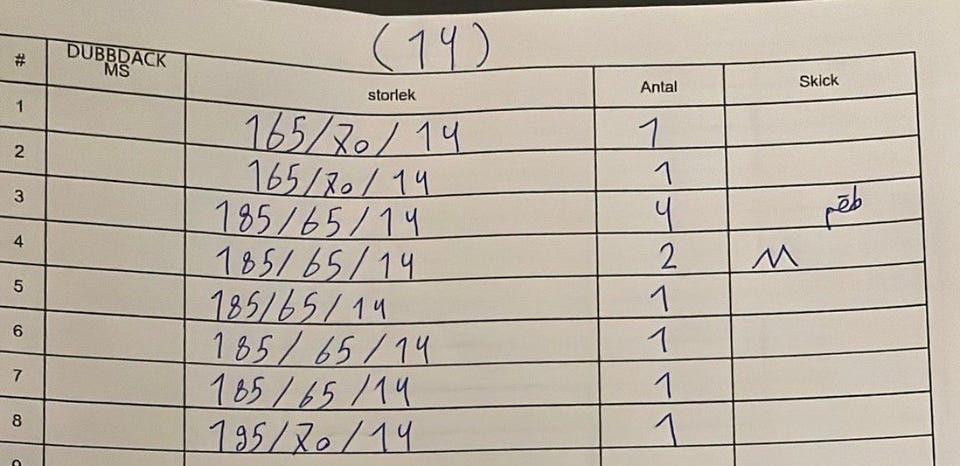 (14)
# DUBBDACK MS storlek Antal Skick
1 165/70/14 1
2 165/70/14 1
3 185/65/14 4
4 185/65/14 2 M
5 185/65/14 1
6 185/65/14 1
7 185/65/14 1
8 195/70/14 1